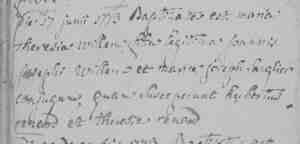 Die 17 junii 1773 Baptizata est maria
theresia willem filia legitima joannis
josephi willem et mariæ joseph
conjugum, quam susceperunt hubertus
renard et theresia renard
Baptizata est